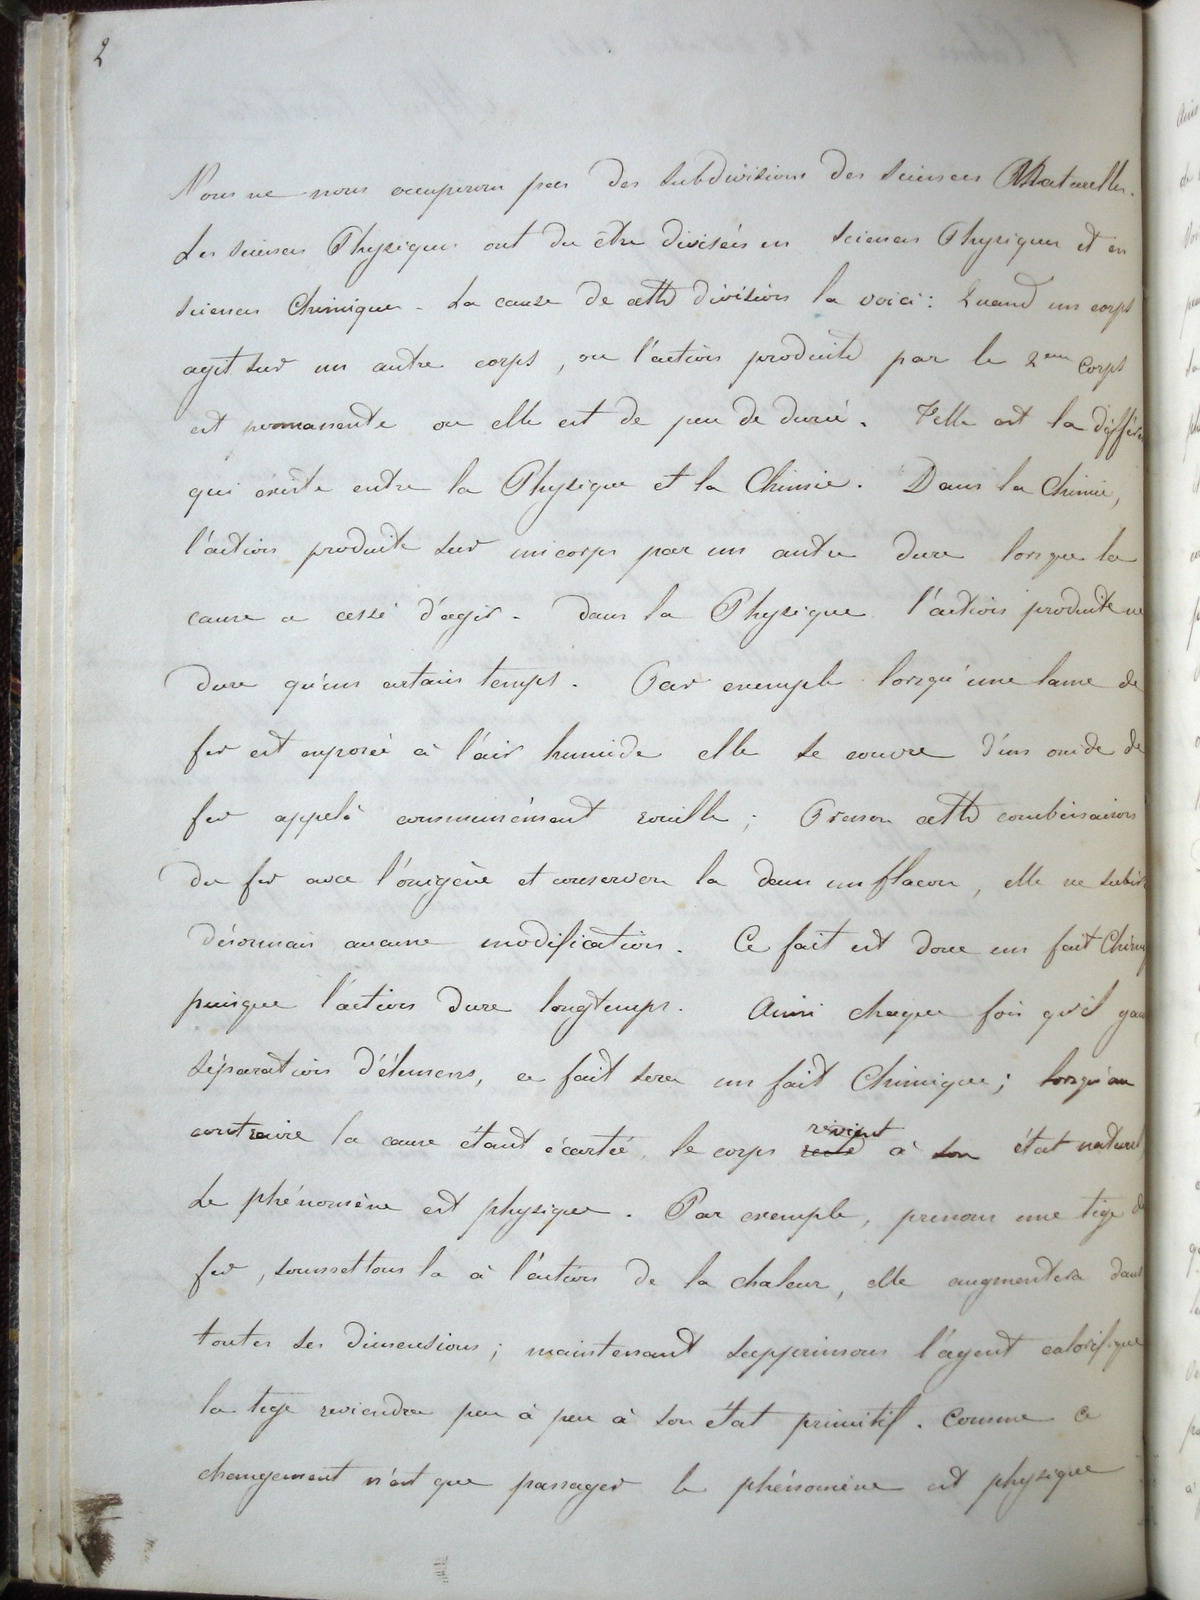 2
Nous ne nous occuperons pas des subdivisions des sciences Naturelles.
Les sciences Physiques ont du être divisées en sciences Physiques et en
sciences Chimiques. La cause de cette division la voici: Quand un corps
agit sur un autre corps, ou l'action produite par le 2eme corps
est permanente ou elle est de peu de durée. Telle est la différ
qui existe entre la Physique et la Chimie. Dans la Chimie,
l'action produite sur un corps par un autre dure lorsque la
cause a cessé d'agir. Dans la Physique l'action produite ne
dure qu'un certain temps. Par exemple lorsqu'une lame de
fer est exposée à l'air humide elle se couvre d'un oxide de
fer appelé communément rouille; Prenon cette combinaison
du fer avec l'oxigène et conservon la dans un flacon, elle ne subir
désormais aucune modification. Ce fait est donc un fait Chimi
puisque l'action dure longtemps. Ainsi chaque fois qu'il y au
séparation d'élemens, ce fait sera un fait Chimique; lorsqu'au
contraire la cause étant écartée, le corps revient à son état naturel
Le phénomène est physique. Par exemple, prenons une tige de
fer, soumettons la à l'action de la chaleur, elle augmentera dans
toutes ses dimensions; maintenant supprimons l'agent calorifique
la tige reviendra peu à peu à son état primitif. Comme ce
changement n'est que passager le phénomène est physique